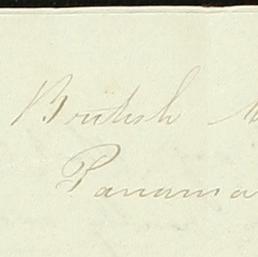 British
Panama